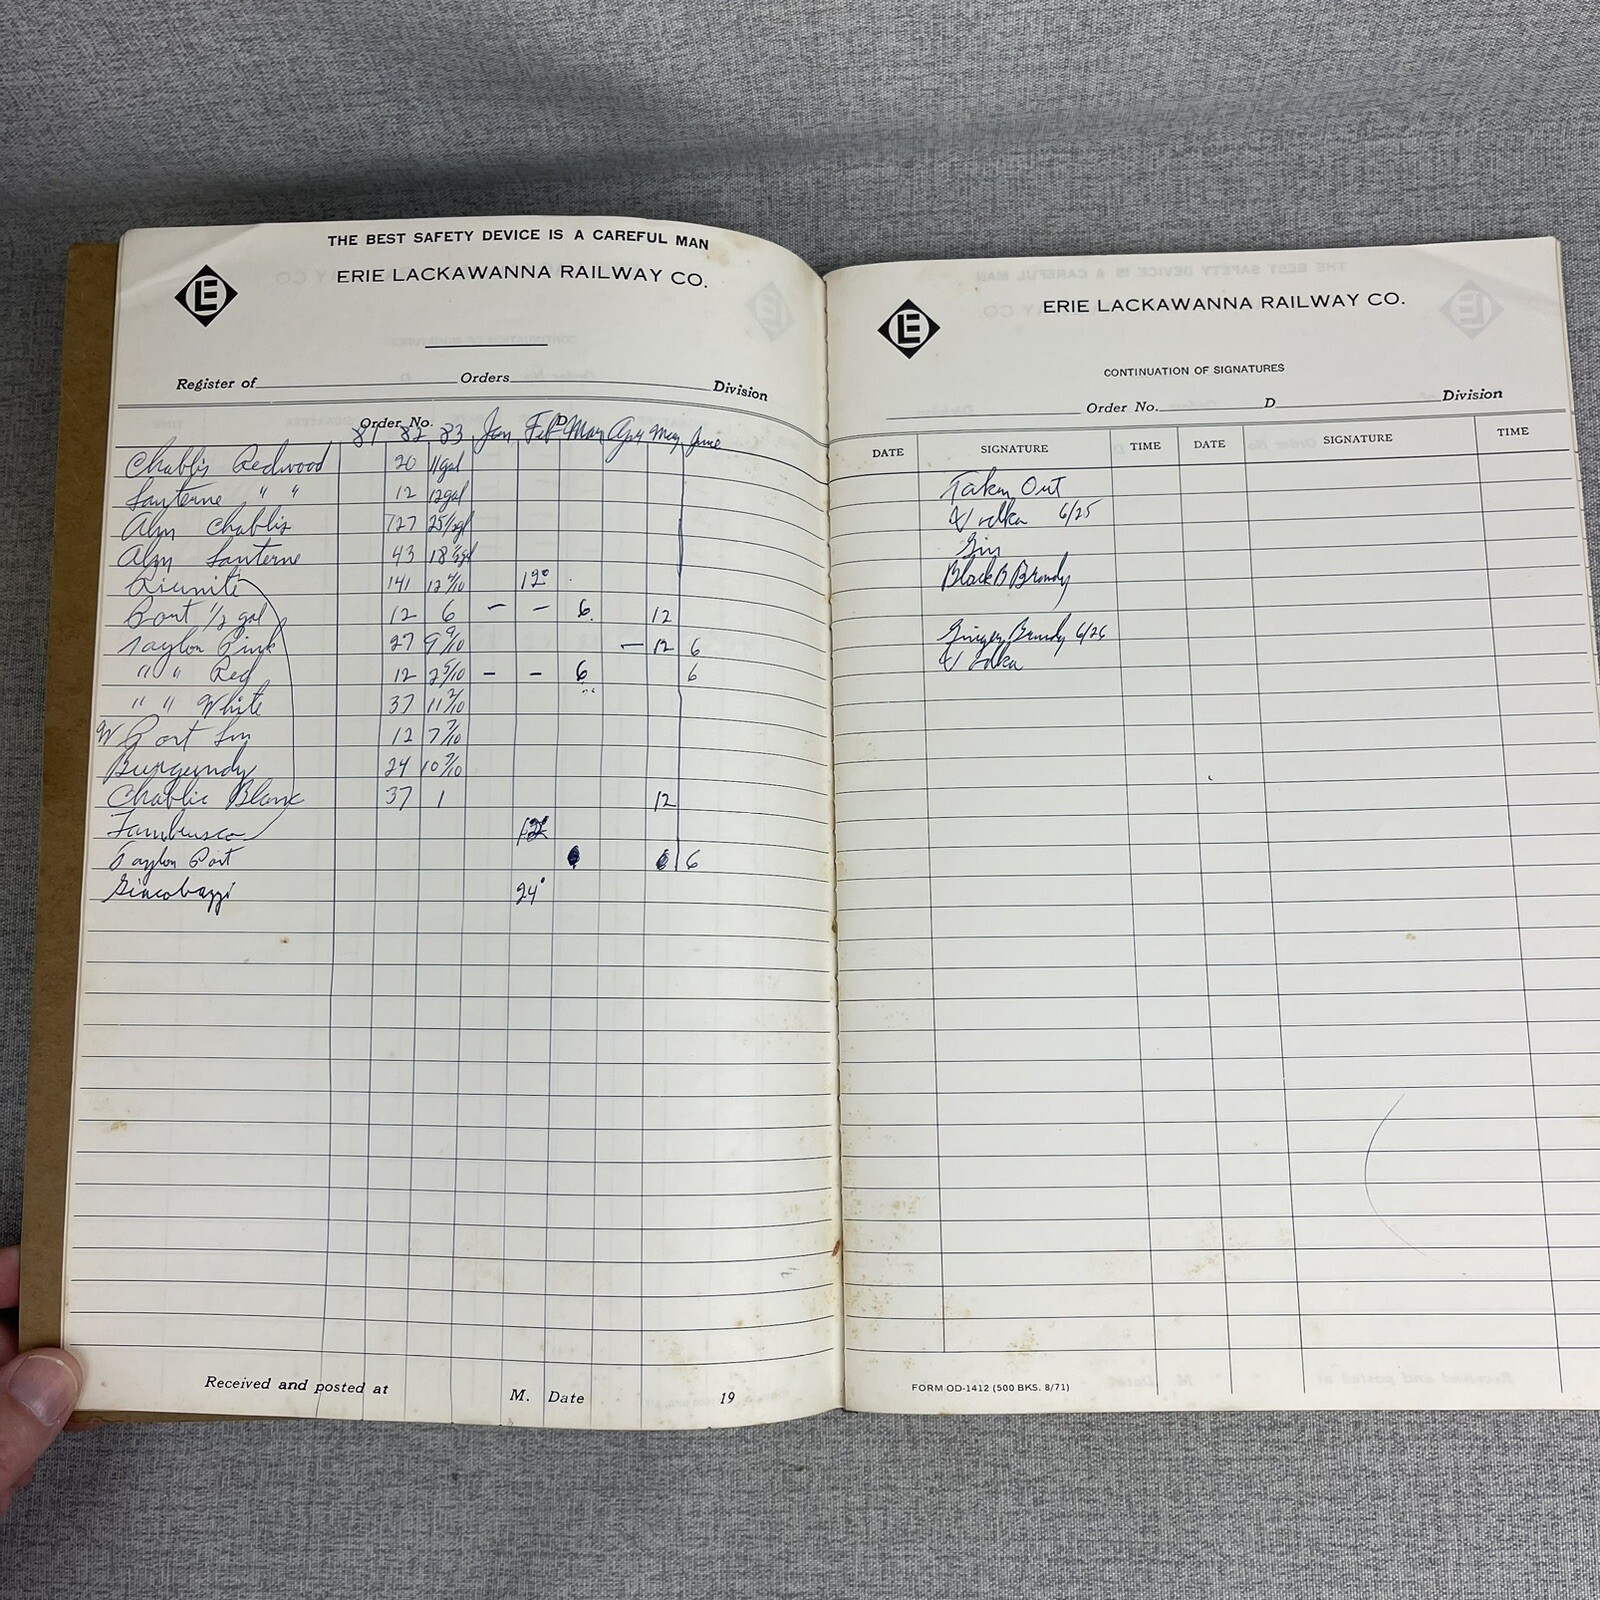 THE BEST SAFETY DEVICE IS A CAREFUL MAN
ERIE LACKAWANNA RAILWAY CO.
Register of Orders Division
Order No. D
81 82 83 Jan Feb Mar Apr May June
Chablis Redwood 20 11gal
Sauterne " " 12 12gal
Alm Chablis 727
Alm Sauterne 43
Riunite 141 12 9/10 12
Port 1/2 gal 12 6 — — 6 12
Taylor Pink 27 9 9/10 — 12 6
" " Red 12 2 5/10 — — 6 6
" " White 37 11 2/10
W Port 12 7 7/10
Burgundy 24 10 7/10
Chablis Blanc 37 1 12
Lambrusco 12
Taylor Port 6
Giacobazzi 24
Received and posted at M. Date 19
ERIE LACKAWANNA RAILWAY CO.
CONTINUATION OF SIGNATURES
Order No. D Division
DATE SIGNATURE TIME DATE SIGNATURE TIME
Taken Out
Vodka 6/25
Gin
Black B Brandy
Ginger Brandy 6/26
Vodka
FORM OD-1412 (500 BKS. 8/71)